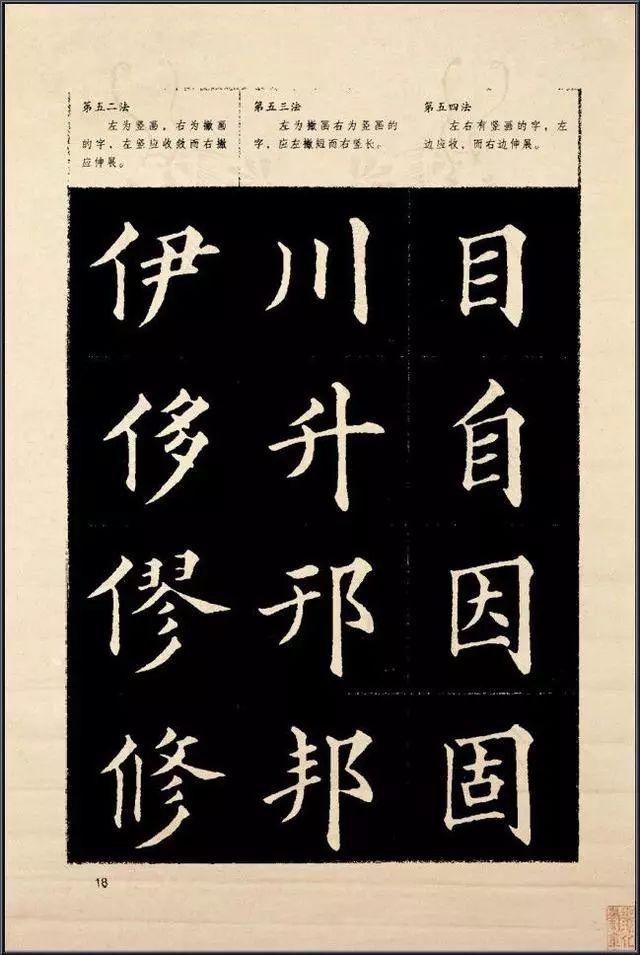 第五二法
左为竖画，右为撇画
的字，左竖应收敛而右撇
应伸展。
第五三法
左为撇画右为竖画的
字，应左撇短而右竖长。
第五四法
左右有竖画的字，左
边应收，而右边伸展。
伊侈僇修
川升邗邦
目自因固
18